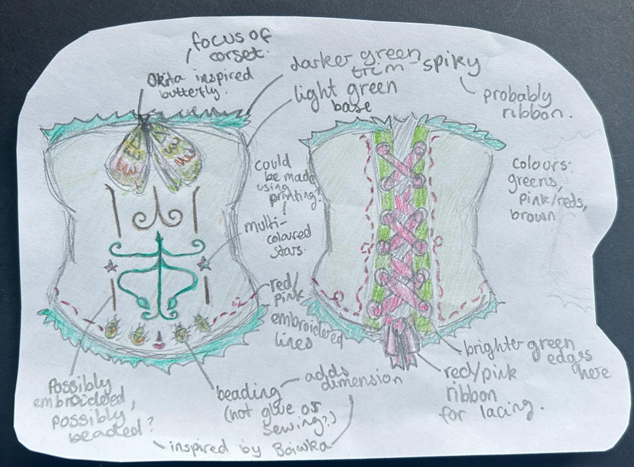 focus of
corset.
Okita inspired
butterfly.
darker green
trim - spiky
probably
ribbon.
light green
base
could
be made
using
printing?
multi-
coloured
stars.
red/
pink
embroidered
lines
Colours:
greens,
pink/reds,
brown
Possibly
embroidered,
possibly
beaded?
beading - adds
dimension
(not glue or
sewing?)
inspired by
brighter green
edges
here
red/pink
ribbon
for lacing.